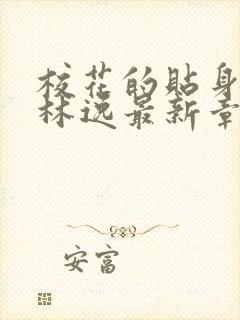 校花的贴身
林逸最新章
安富